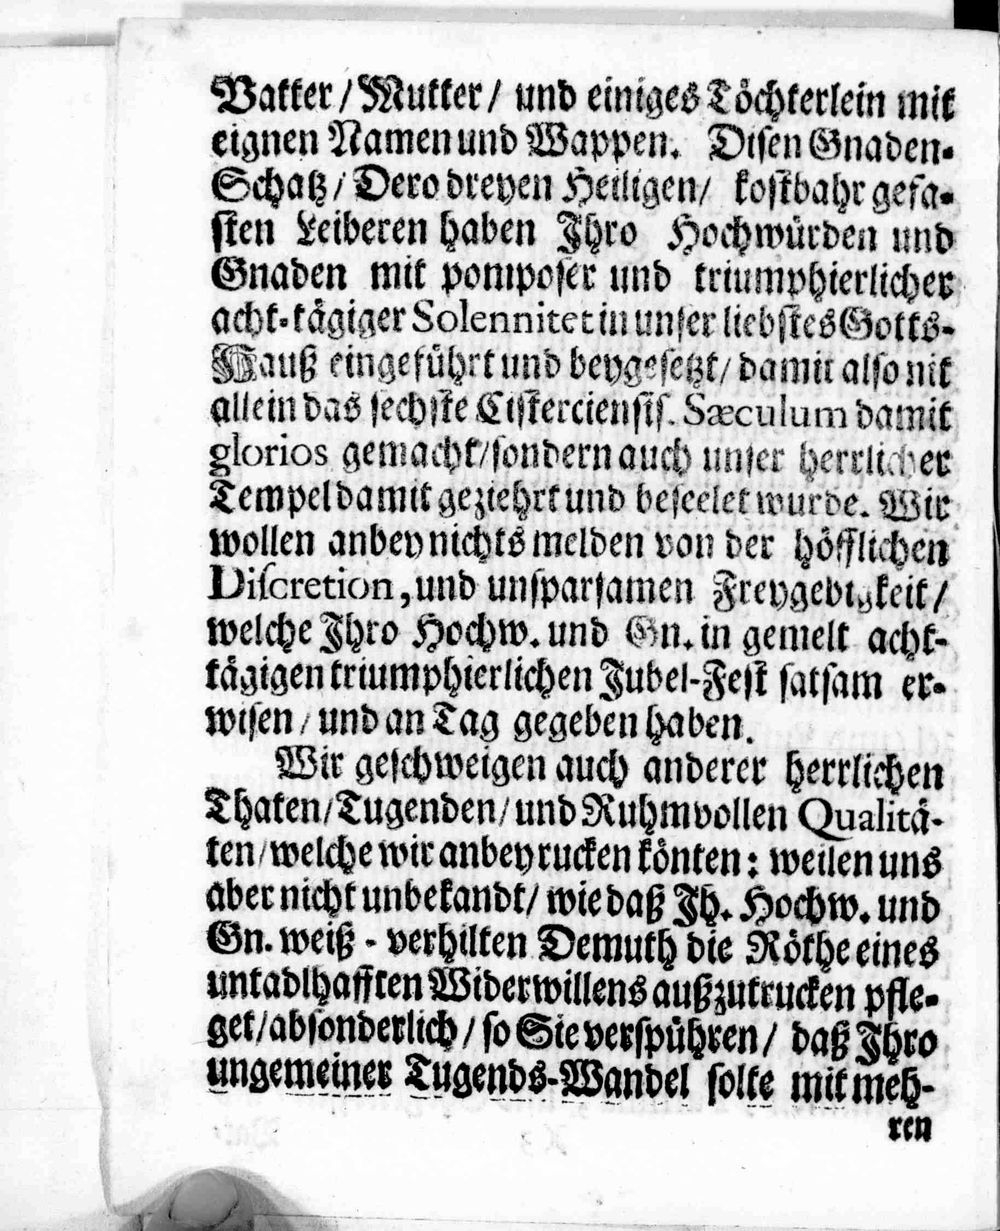 Vatter / Mutter / und einiges Töchterlein mit
eignen Namen und Wappen. Disen Gnaden-
Schatz / Dero dreyen Heiligen / kostbahr gefa-
sten Leiberen haben Ihro Hochwürden und
Gnaden mit pomposer und triumphierlicher
acht-tägiger Solennitet in unser liebstes Gotts-
Hauß eingeführt und beygesetzt / damit also nit
allein das sechste Cisterciensis. Sæculum damit
glorios gemacht / sondern auch unser herrlicher
Tempel damit geziehrt und beseelet wurde. Wir
wollen anbey nichts melden von der höfflichen
Discretion, und unsparsamen Freygebigkeit /
welche Ihro Hochw. und Gn. in gemelt acht-
tägigen triumphierlichen Jubel-Fest satsam er-
wisen / und an Tag gegeben haben.
Wir geschweigen auch anderer herrlichen
Thaten / Tugenden / und Ruhmvollen Qualitä-
ten / welche wir anbey rucken könten : weilen uns
aber nicht unbekandt / wie daß Ih. Hochw. und
Gn. weiß - verhilten Demuth die Röthe eines
untadlhafften Widerwillens außzutrucken pfle-
get / absonderlich / so Sie verspühren / daß Ihro
ungemeiner Tugends-Wandel solte mit meh-
ren